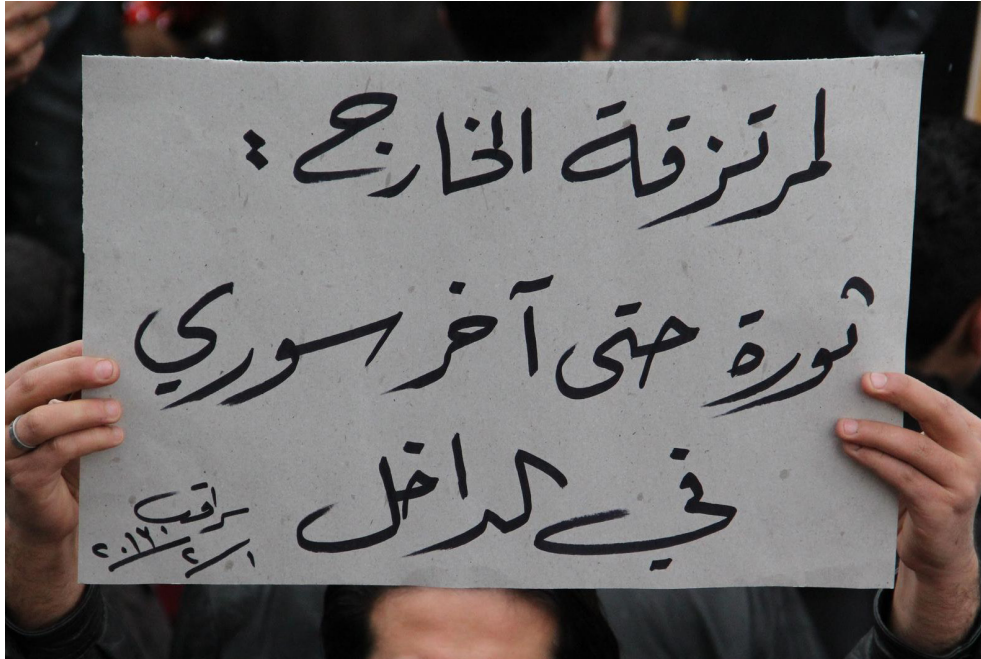 لمرتزقة الخارج :
ثورة حتى آخر سوري
في الداخل
سراقب